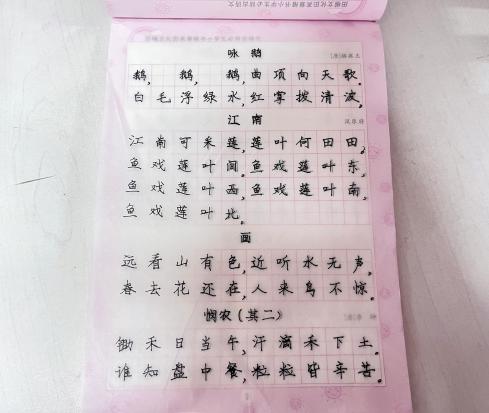 咏鹅
鹅,鹅,鹅,曲项向天歌。
白毛浮绿水,红掌拨清波。
江南
汉乐府
江南可采莲,莲叶何田田,
鱼戏莲叶间。鱼戏莲叶东,
鱼戏莲叶西,鱼戏莲叶南,
鱼戏莲叶北。
画
远看山有色,近听水无声。
春去花还在,人来鸟不惊。
悯农(其二)
锄禾日当午,汗滴禾下土。
谁知盘中餐,粒粒皆辛苦。